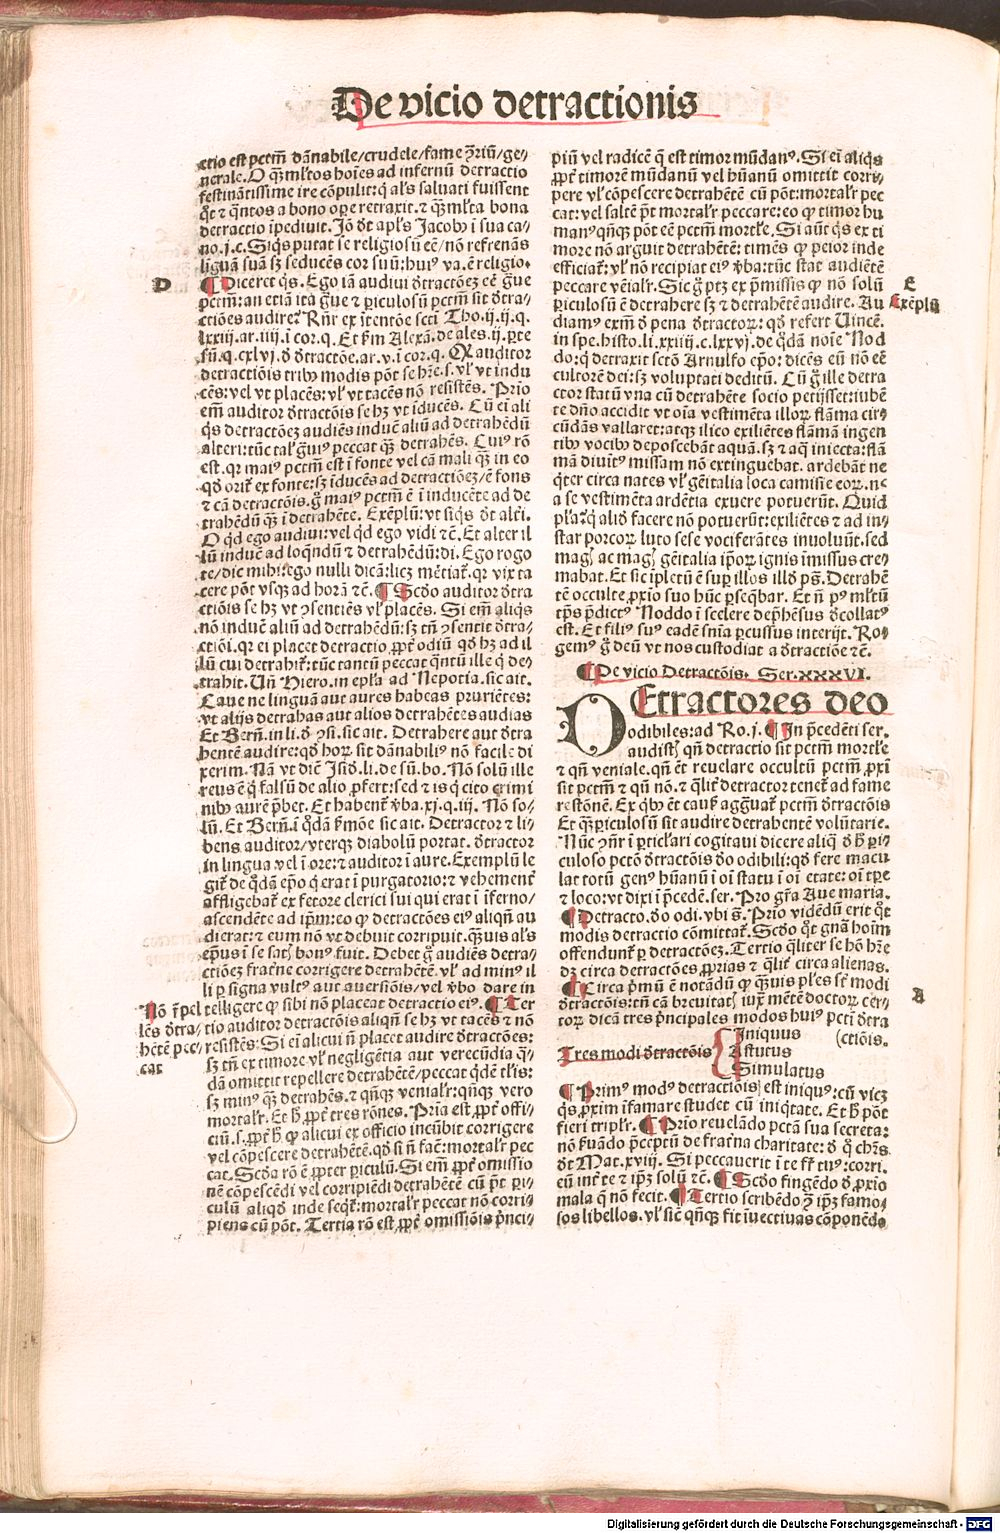 De vicio detractionis
ctio est pctm̄ dānabile/crudele/fame ꝯ̄triū/ge/
nerale. O qꝫ ml̄tos hoīes ad infernū detractio
festinātissime ire cōpulit: q̇ al̓s saluati fuissent
q̊t ⁊ q̄ntos a bono oꝑe retraxit. ⁊ qꝫ ml̄ta bona
detractio īpediuit. Jō dt̄ apl̓s Jacobꝰ ī sua ca/
no. j. c. Siq̇s putat se religiosū eē/nō refrenās
liguā suā sꝫ seducēs cor suū: huiꝰ va. ē religio.
D
¶ Diceret q̇s. Ego iā audiui d̓tractōeꝫ eē g̓ue
pctm̄: an etiā ita g̓ue ⁊ ꝑiculosū pctm̄ sit d̓tra/
ctiōes audire? Rn̄r ex ītentōe scti Tho. ij. ij. q.
lxxiij. ar. iiij. ī cor. q. Et ẜm Alexā. de ales. ij. ꝑte
sū. q. cxlvj. d̓ d̓tractōe. ar. v. ī cor. q. Qꝛ auditor
detractiōis tribꝰ modis pōt se hr̄e. s. vl̓ vt indu
cēs: vel vt placēs: vl̓ vt tacēs nō resistēs. Prīo
em̄ auditor d̓tractōis se hꝫ vt īducēs. Cū eī ali
q̇s detractōeꝫ audiēs induēt aliū ad detrahēdū
alteri: tūc tal̓ g̓uiꝰ peccat qꝫ detrahēs. Cuiꝰ rō
est. qꝛ maiꝰ pctm̄ est ī fonte vel cā mali qꝫ in eo
qd̓ orit̓ ex fonte: sꝫ īducēs ad detractiōeꝫ/ē fons
⁊ cā detractōis. g̊ maiꝰ pctm̄ ē ī inducēte ad de
trahēdū qꝫ ī detrahēte. Exēplū: vt siq̇s dt̄ alt̓i.
O qd̓ ego audiui: vel qd̓ ego vidi ⁊c̄. Et alter il
lū induēt ad loq̄ndū ⁊ detrahēdū: di. Ego rogo
te/dic mihi: ego nulli dicā: licꝫ mētiat̓. qꝛ vix ta
cere pōt vsqꝫ ad horā ⁊c̄. ¶ Scd̓o auditor d̓tra
ctiōis se hꝫ vt ꝯsentiēs vl̓ placēs. Si em̄ aliq̇s
nō induēt aliū ad detrahēdū: sꝫ tn̄ ꝯsentit d̓tra/
ctiōi. qꝛ ei placet detractio ꝓpt̓ odiū qd̓ hꝫ ad il
lū cui detrahit̓: tūc tantū peccat q̄ntū ille q̇ de/
trahit. Un̄ Hiero. in epl̓a ad Nepotiā. sic ait.
Caue ne linguā aut aures habeas pruriētes:
vt alijs detrahas aut alios detrahētes audias
Et Bern̄. in li. d̓ ꝯsi. sic ait. Detrahere aut d̓tra
hentē audire: qd̓ hoꝝ sit dānabiliꝰ nō facile di
xerim. Nā vt dic̄ Jsid̓. li. de sū. bo. Nō solū ille
reus ē q̇ falsū de alio ꝓfert: sed ⁊ is q̇ cito crimi
nibꝰ aurē p̄bet. Et habent̓ v̓ba. xj. q. iij. Nō so/
lū. Et Bern̄. ī q̇dā ẜmōe sic ait. Detractor ⁊ li/
bens auditor/vterqꝫ diabolū portat. d̓tractor
in lingua vel ī ore: ⁊ auditor ī aure. Exemplū le
git̓ de q̇dā ep̄o q̇ erat ī purgatorio: ⁊ vehement̓
affligebat̓ ex fetore clerici sui qui erat ī īferno/
ascendēte ad ip̄m: eo ꝙ detractōes eiꝰ aliqn̄ au
dierat: ⁊ eum nō vt debuit corripuit. qꝫuis al̓s
ep̄us ī se satꝭ bonꝰ fuit. Debet g̊ audiēs detra/
ctiōeꝫ frat̓ne corrigere detrahētē. vl̓ ad minꝰ il
li ꝑ signa vultꝰ aut auersiōis/vel v̓bo dare in
Nō r̄pel
lēs d̓tra/
hētē pec/
cat
telligere ꝙ sibi nō placeat detractio eiꝰ. ¶ Ter
tio auditor detractōis aliqn̄ se hꝫ vt tacēs ⁊ nō
resistēs: Si eī alicui nō placet audire d̓tractōes:
sꝫ tn̄ ex timore vl̓ negligētia aut verecūdia q̄/
dā omittit repellere detrahētē/peccat q̇dē tl̓is:
sꝫ minꝰ qꝫ detrahēs. ⁊ qn̄qꝫ venialr̓: qn̄qꝫ vero
mortalr̓. Et h̊ ꝓpt̓ tres rōnes. Prīa est, ꝓpt̓ offi/
ciū. s. ꝓpt̓ h̊ ꝙ alicui ex officio incūbit corrigere
vel cōpescere detrahētē. qd̓ si nō fac̄: mortalr̓ pec
cat. Scd̓a rō ē ꝓpter ꝑiculū. Si em̄ ꝓpt̓ omissio
nē cōpescēdi vel corripiēdi detrahētē cū pōt ꝑi/
culū aliqd̓ inde seqt̓: mortalr̓ peccat nō corri/
piens cū pōt. Tertia rō est, ꝓpt̓ omissiōis p̄nci/
piū vel radicē q̄ est timor mūdanꝰ. Si eī aliq̇s
ꝓpt̓ timorē mūdanū vel hūanū omittit corri/
pere vl̓ cōpescere detrahētē cū pōt: mortalr̓ pec
cat: vel saltē pōt mortalr̓ peccare: eo ꝙ timor hu
manꝰ qn̄qꝫ pōt eē pctm̄ mortl̓e. Si aūt q̇s ex ti
more nō arguit detrahētē: timēs ꝙ peior inde
efficiat̓: vl̓ nō recipiat eiꝰ v̓ba: tūc stat audiētē
peccare vēialr̓. Sic g̊ ptꝫ ex p̄missis ꝙ nō solū
E
Exēplū
ꝑiculosū ē detrahere sꝫ ⁊ detrahētē audire. Au
diamꝰ exm̄ d̓ pena d̓tractoꝝ: qd̓ refert Uincē.
in spe. histo. li. xxiiij. c. lxxvj. de q̇dā noīe Nod
do: q̇ detraxit sctō Arnulfo ep̄o: dicēs eū nō eē
cultorē dei: sꝫ voluptati deditū. Cū g̊ ille detra
ctor statū vna cū detrahēte socio petijsset: iubē
te dn̄o accidit vt oīa vestimēta illoꝝ flāma cir/
cūdās vallaret: atqꝫ ilico exiliētes flāmā ingen
tibꝰ vocibꝰ deposcebāt aquā. sꝫ ⁊ aq̄ iniecta: flā
mā diuīꝰ missam nō extinguebat. ardebāt ne
q̇ter circa nates vl̓ gēitalia loca camisie eoꝝ. nec
a se vestimēta ardētia exuere potuerūt. Quid
pl̓a? q̇ aliō facere nō potuerūt: exiliētes ⁊ ad in/
star porcoꝝ luto sese vociferātes inuoluūt. sed
magꝭ ac magꝭ gēitalia ip̄oꝝ ignis īmissus cre/
mabat. Et sic īpletū ē suꝑ illos illd̓ ps̄. Detrahē
tē occulte ꝓxio suo hūc ꝑseq̄bar. Et nō pꝰ ml̄tū
tp̄s p̄dictꝰ Noddo ī scelere dep̄hēsus d̓collatꝰ
est. Et filiꝰ suꝰ eadē sn̄ia ꝑcussus interijt. Ro/
gemꝰ g̊ deū vt nos custodiat a d̓tractiōe ⁊c̄.
¶ De vicio Detractōis. Ser. XXXVI.
DEtractores deo
odibiles: ad Ro. j. ¶ In p̄cedēti ser.
audistꝭ qn̄ detractio sit pctm̄ mortl̓e
⁊ qn̄ veniale. qn̄ ēt reuelare occultū pctm̄ ꝓxī
sit pctm̄ ⁊ qn̄ nō. ⁊ q̄lit̓ detractor tenet̓ ad fame
restōnē. Ex qbꝰ ēt causꝭ agg̓uat̓ pctm̄ d̓tractōis
Et qꝫ ꝑiculosū sit audire detrahentē volūtarie.
Nūc ꝯn̄r ī ꝑticl̓ari cogitaui dicere aliq̇ d̓ h̊ ꝑi/
culoso pctō d̓tractōis d̓o odibili: qd̓ fere macu
lat totū genꝰ hūanū ī oī statu ī oī etate: oī tꝑe
⁊ loco: vt dixi ī p̄cedē. ser. Pro gr̄a Aue maria.
¶ Detracto. d̓o odi. vbi s̄. Prīo vidēdū erit q̊t
modis detractio cōmittat̓. Scd̓o q̊t gn̄a hoīm
offendunt̓ ꝑ detractōeꝫ. Tertio q̄liter se hō hr̄e
dꝫ circa detractōes ꝓprias ⁊ q̄lit̓ circa alienas.
A
¶ Circa p̄mū ē notādū ꝙ qꝫuis pl̓es st̄ modi
d̓tractōis: tn̄ cā breuitatꝭ iux̓ mētē doctoꝝ cer/
toꝝ dicā tres p̄ncipales modos huiꝰ pcti d̓tra
(ctiōis.
Tres modi d̓tractōis { Iniquus
Astutus
Simulatus
¶ Primꝰ modꝰ detractiōis est iniquꝰ: cū vicꝫ
q̇s ꝓxim̄ īfamare studet cū iniq̇tate. Et h̊ pōt
fieri triplr̓. ¶ Prīo reuelādo pctā sua secreta:
nō ẜuādo p̄ceptū de frat̓na charitate: d̓ q̊ chr̄s
dt̄ Mat. xviij. Si peccauerit ī te frt̓ tuꝰ: corri.
eū int̓ te ⁊ ip̄ꝫ solū ⁊c̄. ¶ Scd̓o fingēdo d̓ ꝓxio
mala q̄ nō fecit. ¶ Tertio scribēdo ꝯ̄ ip̄ꝫ famo/
sos libellos. vl̓ sic̄ qn̄qꝫ fit īuectiuas cōponēdo
Digitalisierung gefördert durch die Deutsche Forschungsgemeinschaft - DFG